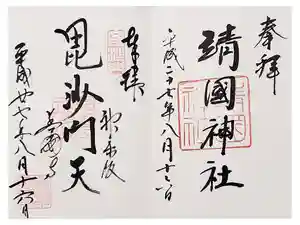 奉拝
靖國神社
平成二十七年八月十六日
奉拝
毘沙門天
善國寺
平成廿七年八月十六日